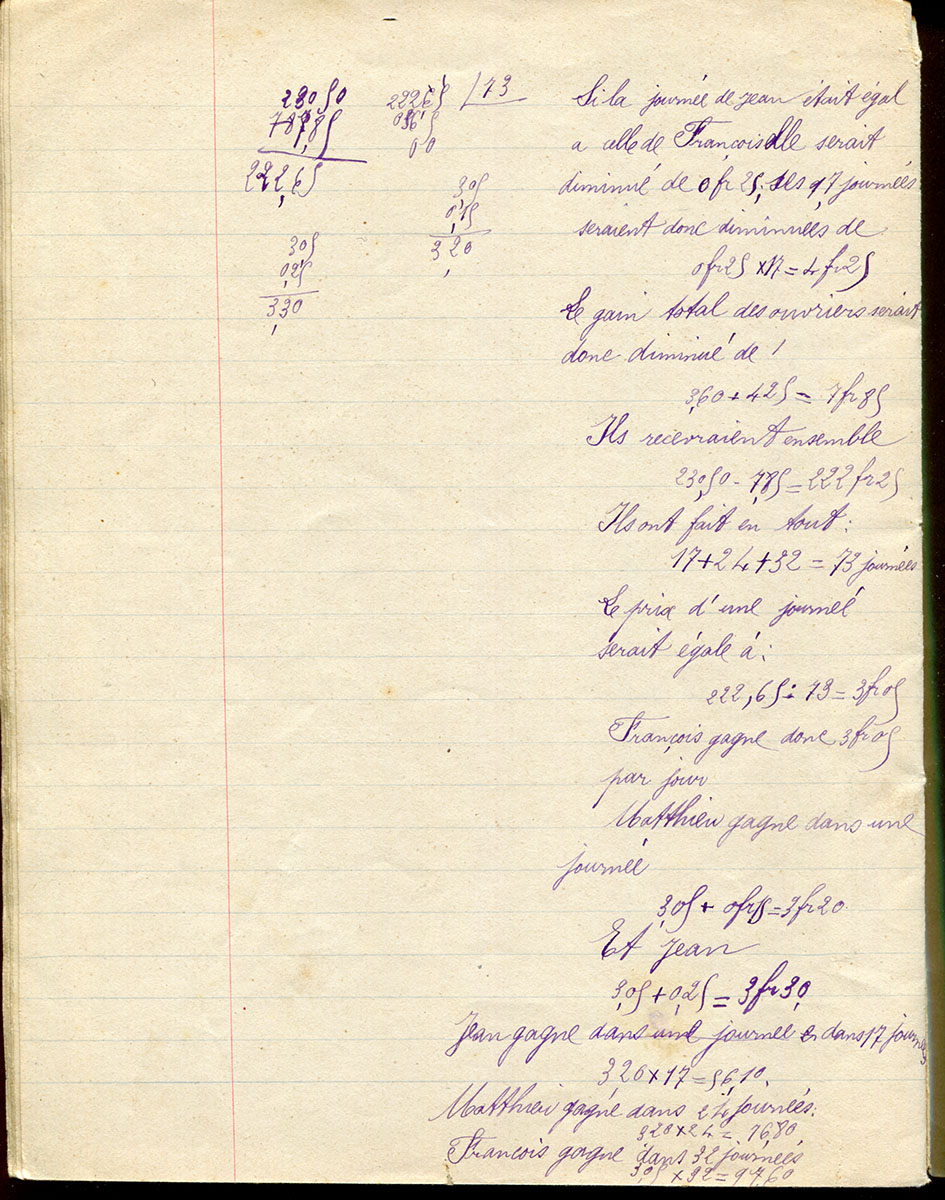 230,50
7,85
222,65
222,65 | 73
036,5
00
3,05
0,15
3,20
3,05
0,25
3,30
Si la journée de Jean était égal
a celle de François elle serait
diminué de 0fr25; ses 17 journées
seraient donc diminuées de
0fr25 × 17 = 4fr25
Le gain total des ouvriers serait
donc diminué de !
3,60 + 425 = 7fr85
Ils recevraient ensemble
230,50 - 7,85 = 222fr25
Ils ont fait en tout :
17+24+32 = 73 journées
Le prix d'une journeé
serait égale á :
222,65 : 73 = 3fr05
François gagne donc 3fr05
par jour
Matthieu gagne dans une
journeé
3,05 + 0fr15 = 3fr20
Et Jean
3,05 + 0,25 = 3fr30,
Jean gagne dans une journee dans 17 journees
320 × 17 = 56,10.
Matthieu gagne dans 24 journeés:
320 × 24 = 7680
François gagne dans 32 journeés
3,05 × 32 = 9760